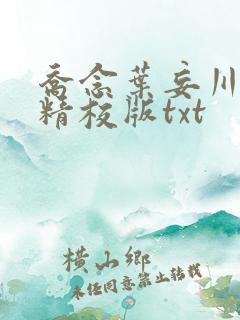 乔念葉妄川
精校版txt
横山鄉
未经同意禁止转载